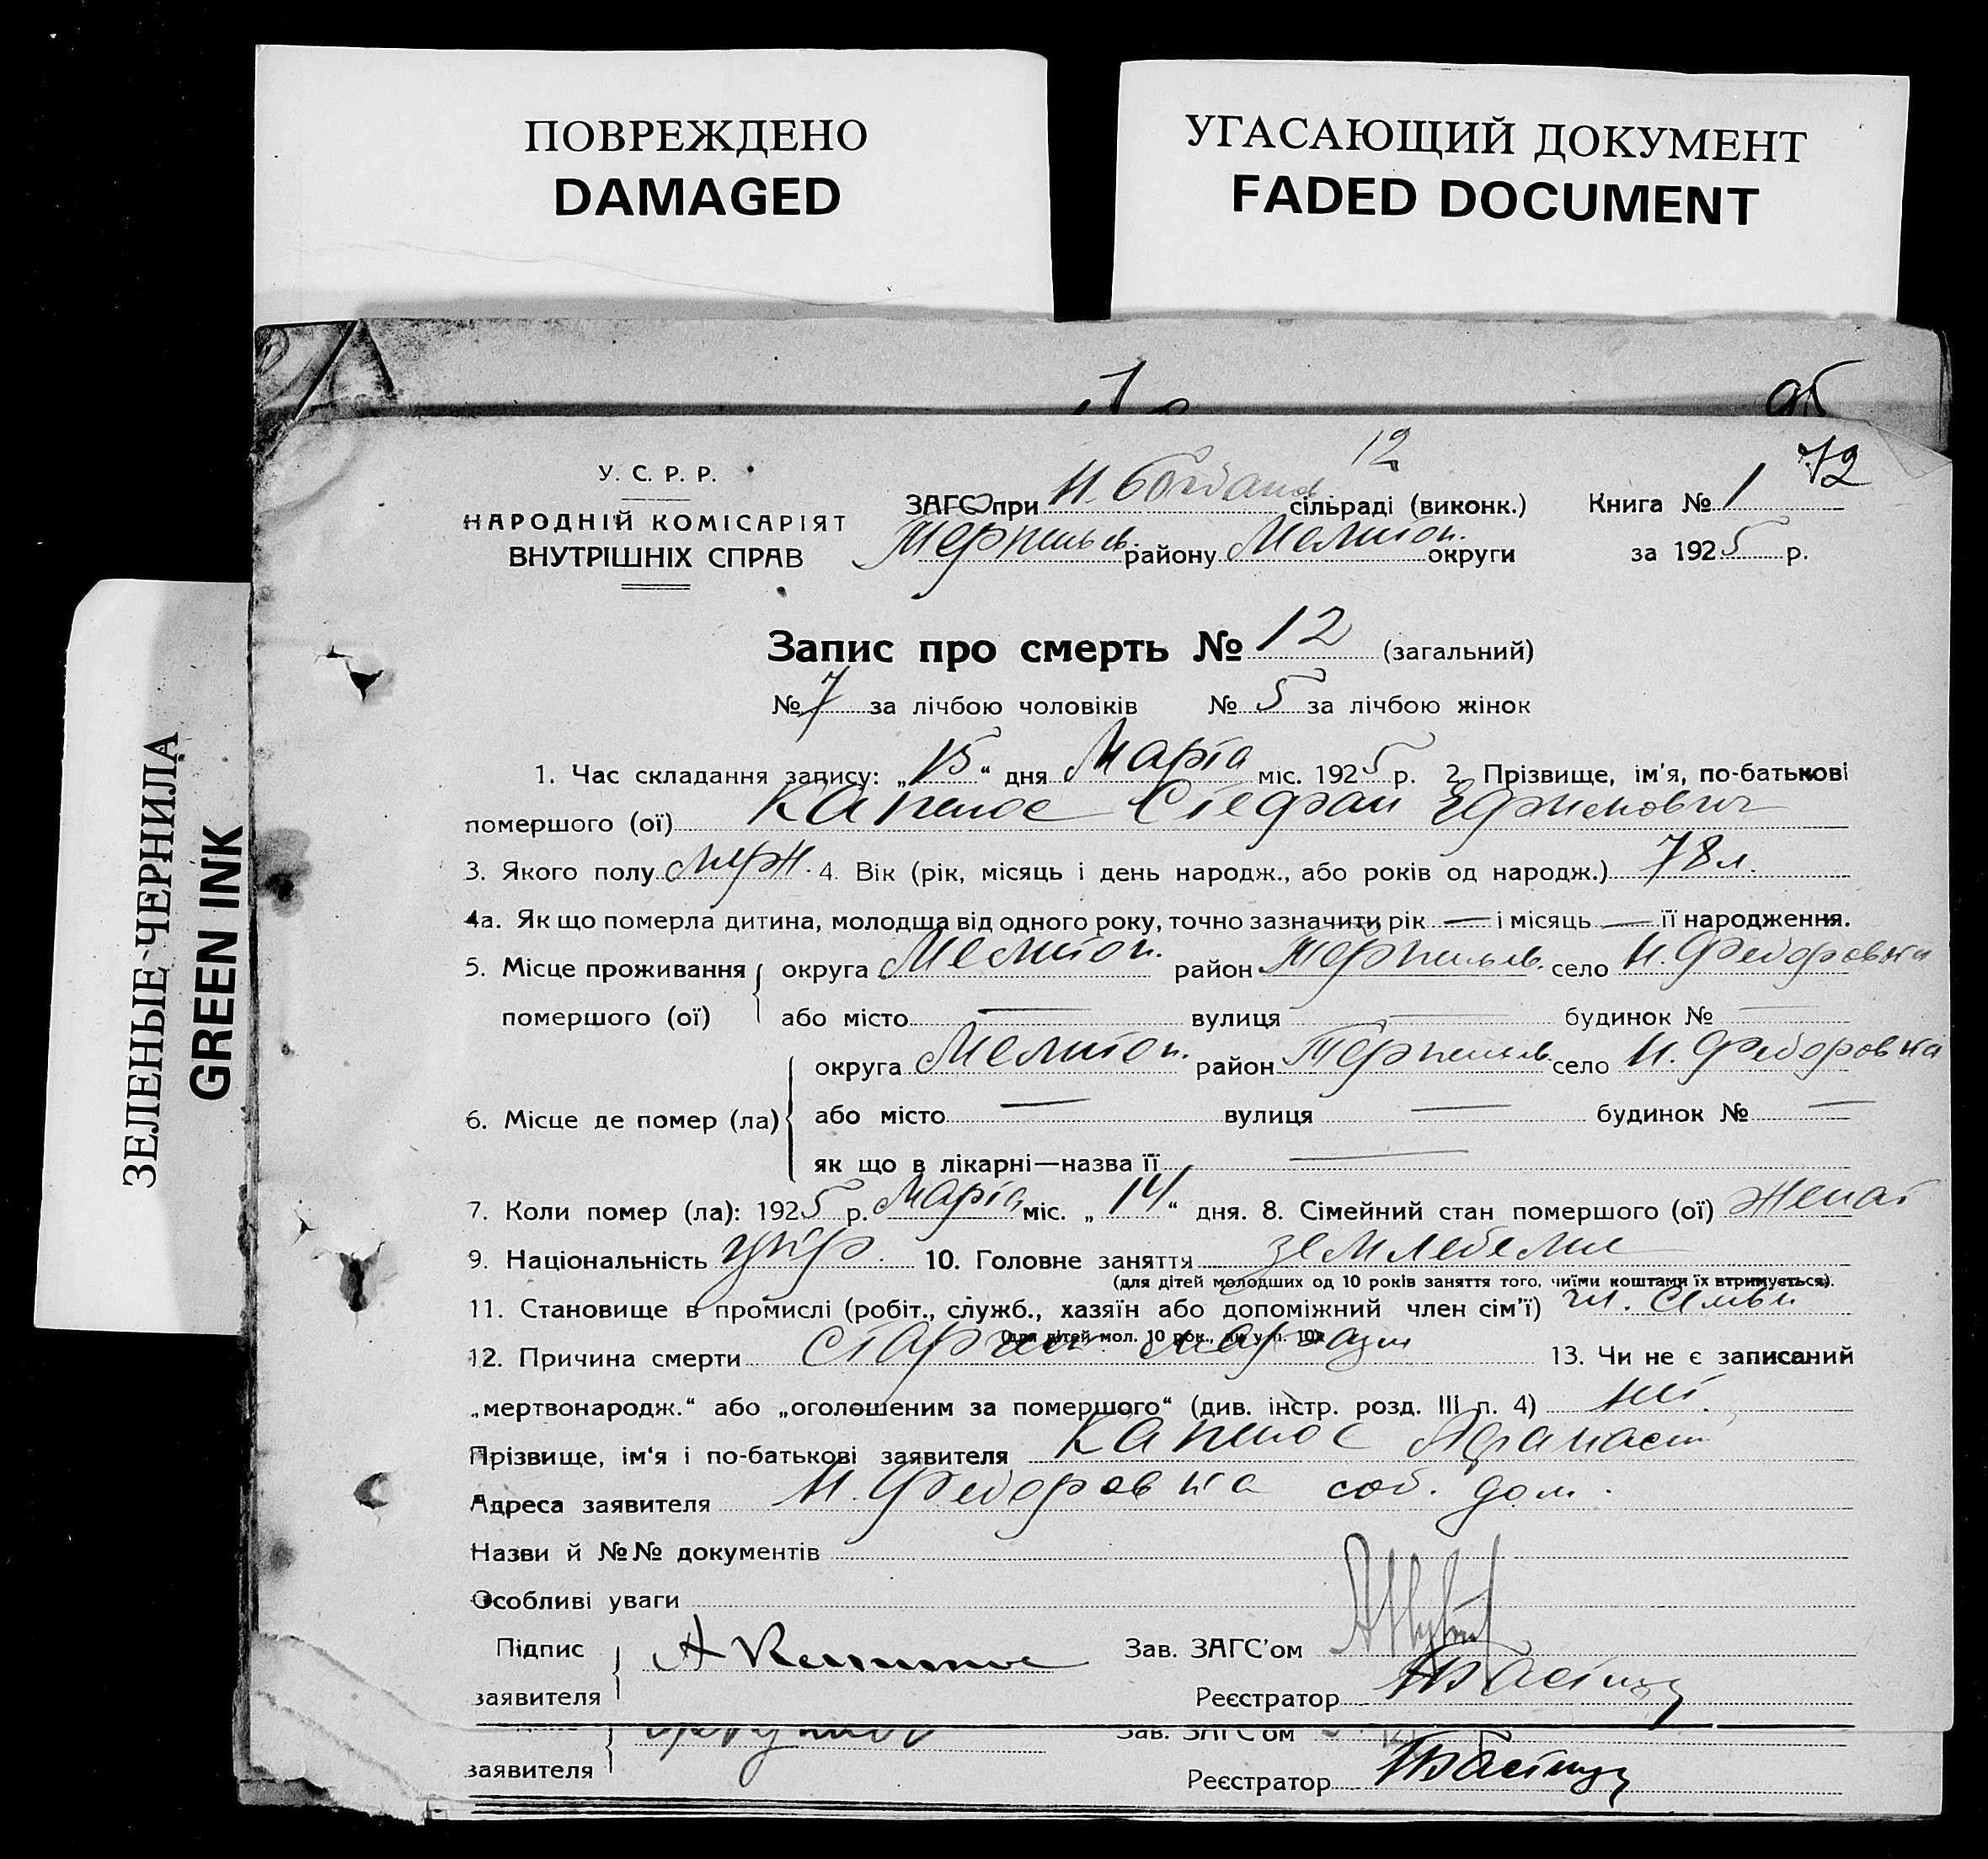 ПОВРЕЖДЕНО
DAMAGED
УГАСАЮЩИЙ ДОКУМЕНТ
FADED DOCUMENT
ЗЕЛЕНЫЕ ЧЕРНИЛА
GREEN INK
95
12
72
У. С. Р. Р.
НАРОДНІЙ КОМІСАРІЯТ
ВНУТРІШНІХ СПРАВ
ЗАГС при Н. Богдан. сільраді (виконк.) Книга № 1
Терпеньев. району Мелитоп. округи за 1925 р.
Запис про смерть № 12 (загальний)
№ 7 за лічбою чоловіків № 5 за лічбою жінок
1. Час складання запису: „15“ дня Марта міс. 1925 р. 2. Прізвище, ім'я, по-батькові
помершого (ої) Капинос Стефан Ефимович
3. Якого полу муж. 4. Вік (рік, місяць і день народж., або років од народж.) 78 л.
4а. Як що померла дитина, молодща від одного року, точно зазначити рік — і місяць — її народження.
5. Місце проживання помершого (ої) округа Мелитоп. район Терпеньев. село Н. Федоровка
або місто — вулиця — будинок № —
6. Місце де помер (ла) округа Мелитоп. район Терпеньев. село Н. Федоровка
або місто — вулиця — будинок № —
як що в лікарні—назва її —
7. Коли помер (ла): 1925 р. Марта міс. „14“ дня. 8. Сімейний стан помершого (ої) женат
9. Національність укр. 10. Головне заняття земледелие
(для дітей молодших од 10 років заняття того, чиїми коштами їх втримується).
11. Становище в промислі (робіт., служб., хазяїн або допоміжний член сім'ї) чл. семьи
(для дітей мол. 10 рок., як у п. 10)
12. Причина смерти старч. маразм 13. Чи не є записаний
„мертвонародж.“ або „оголошеним за помершого“ (див. інстр. розд. III п. 4) ні.
Прізвище, ім'я і по-батькові заявителя Капинос Афанасий
Адреса заявителя Н. Федоровка соб. дом.
Назви й №№ документів
Особливі уваги
Підпис заявителя А Капинос Зав. ЗАГС'ом
Реєстратор
Зав. ЗАГС'ом
заявителя
Реєстратор